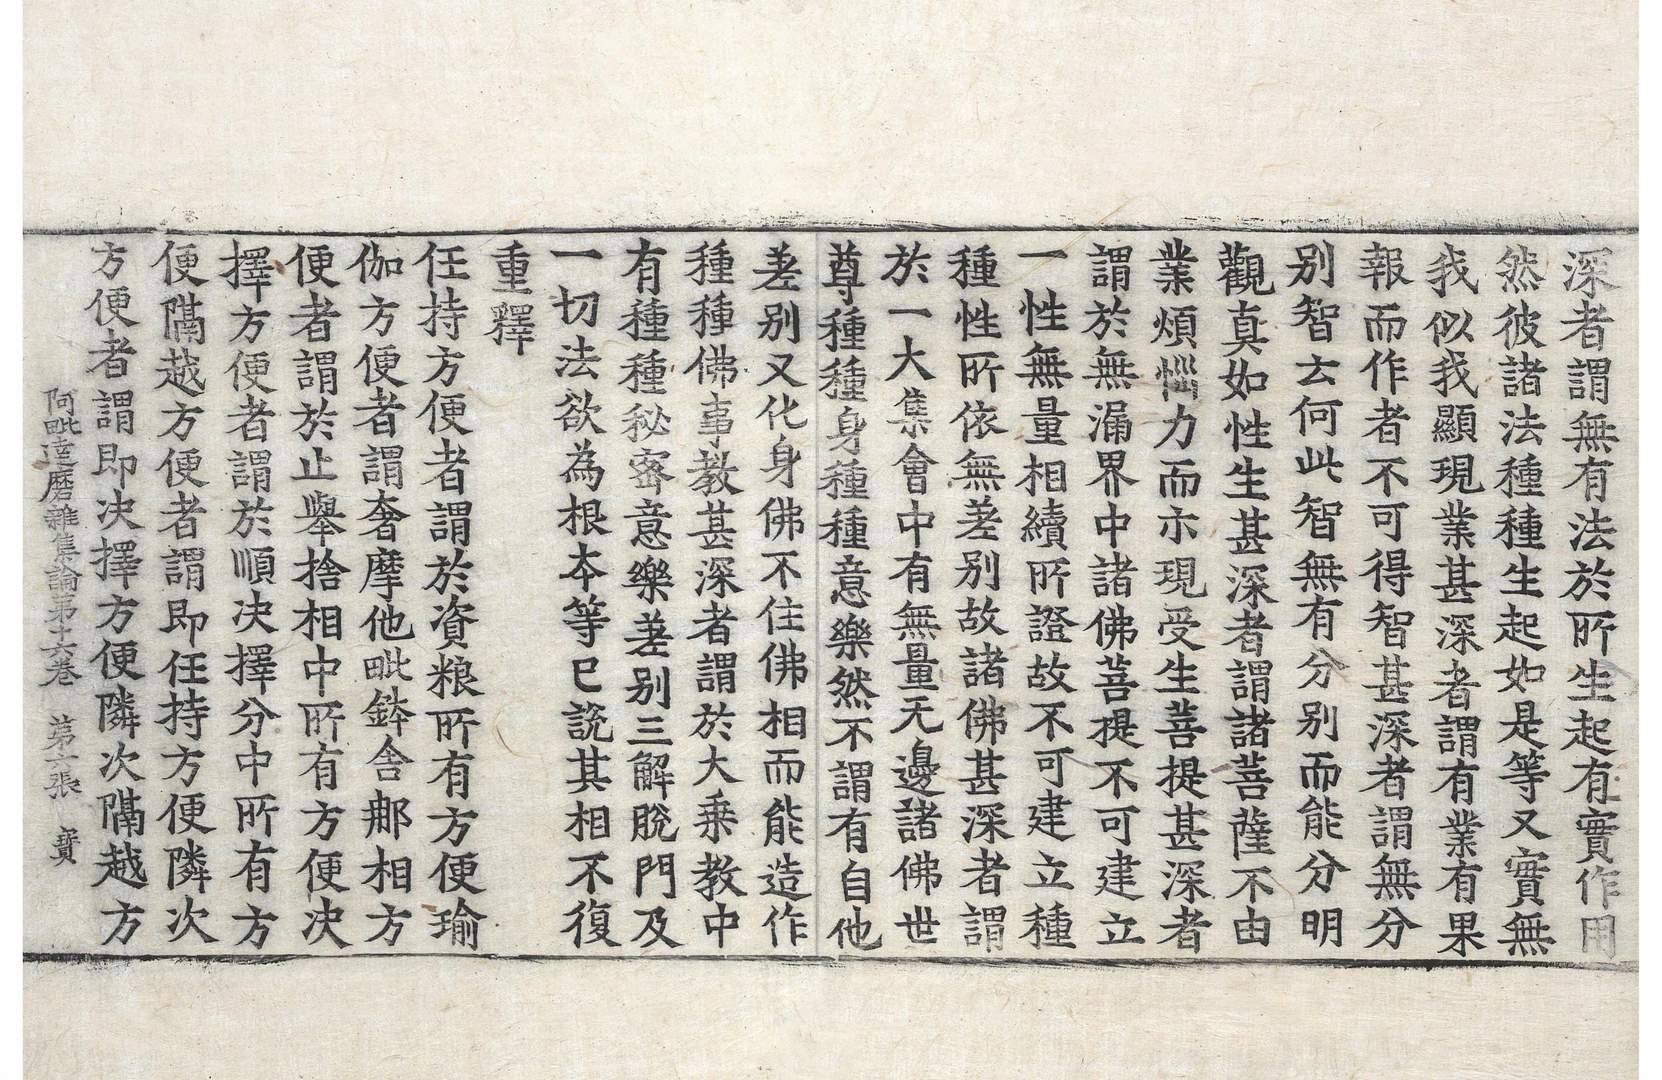 深者謂無有法於所生起有實作用
然彼諸法種種生起如是等又實無
我似我顯現業甚深者謂有業有果
報而作者不可得智甚深者謂無分
别智云何此智無有分别而能分明
觀真如性生甚深者謂諸菩薩不由
業煩惱力而示現受生菩提甚深者
謂於無漏界中諸佛菩提不可建立
一性無量相續所證故不可建立種
種性所依無差别故諸佛甚深者謂
於一大集會中有無量无邊諸佛世
尊種種身種種意樂然不謂有自他
差别又化身佛不住佛相而能造作
種種佛事教甚深者謂於大乗教中
有種種秘密意樂差别三解脫門及
一切法欲為根本等已說其相不復
重釋
任持方便者謂於資粮所有方便瑜
伽方便者謂奢摩他毗鉢舍那相方
便者謂於止舉捨相中所有方便决
擇方便者謂於順决擇分中所有方
便隔越方便者謂即任持方便隣次
方便者謂即决擇方便隣次隔越方
阿毗達磨雜集論第十六卷 第六張 寶